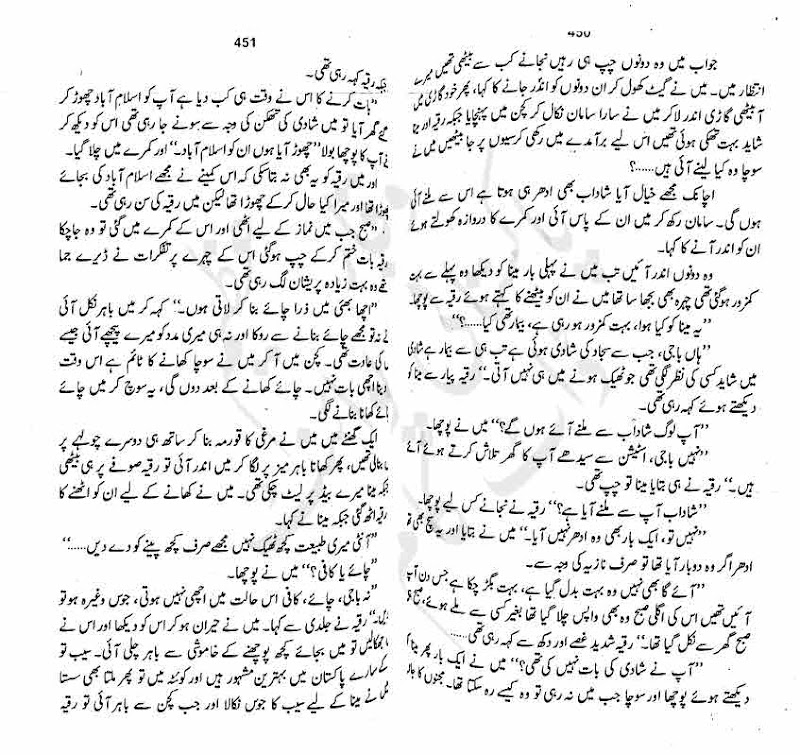 450
جواب میں وہ دونوں چپ ہی رہیں نجانے کب سے بیٹھی تھیں میرے
انتظار میں۔ میں نے گیٹ کھول کر ان دونوں کو اندر جانے کا کہا، پھر خود گاڑی میں
آ بیٹھی گاڑی اندر لا کر میں نے سارا سامان نکال کر کچن میں پہنچایا جبکہ رقیہ اور مینا
شاید بہت تھکی ہوئی تھیں اس لیے برآمدے میں رکھی کرسیوں پر جا بیٹھیں میں نے
سوچا وہ کیا لینے آئی ہیں......؟
اچانک مجھے خیال آیا شاداب بھی ادھر ہی ہوتا ہے اس سے ملنے آئی
ہوں گی۔ سامان رکھ کر میں ان کے پاس آئی اور کمرے کا دروازہ کھولتے ہوئے
ان کو اندر آنے کا کہا۔
وہ دونوں اندر آئیں تب میں نے پہلی بار مینا کو دیکھا وہ پہلے سے بہت
کمزور ہو گئی تھی چہرہ بھی بجھا سا تھا میں نے ان کو بیٹھنے کا کہتے ہوئے رقیہ سے پوچھا۔
”یہ مینا کو کیا ہوا، بہت کمزور ہو رہی ہے، بیمار تھی کیا......؟“
”ہاں باجی، جب سے سجاد کی شادی ہوئی ہے تب ہی سے بیمار ہے شادی
میں شاید کسی کی نظر لگی تھی جو ٹھیک ہونے میں ہی نہیں آتی۔“ رقیہ پیار سے مینا کو
دیکھتے ہوئے کہہ رہی تھی۔
”آپ لوگ شاداب سے ملنے آئے ہوں گے؟“ میں نے پوچھا۔
”نہیں باجی، اسٹیشن سے سیدھے آپ کا گھر تلاش کرتے ہوئے آئے
ہیں۔“ رقیہ نے ہی بتایا مینا تو چپ تھی۔
”شاداب آپ سے ملنے آیا ہے؟“ رقیہ نے نجانے کس لیے پوچھا۔
”نہیں تو، ایک بار بھی وہ ادھر نہیں آیا۔“ میں نے بتایا اور یہ سچ بھی تھا
ادھر اگر وہ دو بار آیا تھا تو صرف نازیہ کی وجہ سے۔
”آئے گا بھی نہیں وہ بہت بدل گیا ہے، بہت بگڑ چکا ہے جس دن آپ
آئیں تھیں اس کی اگلی صبح وہ بھی واپس چلا گیا تھا بغیر کسی سے ملے ہوئے، صبح
صبح گھر سے نکل گیا تھا۔“ رقیہ شدید غصے اور دکھ سے کہہ رہی تھی......
”آپ نے شادی کی بات نہیں کی تھی؟“ میں نے ایک بار پھر مینا کو
دیکھتے ہوئے پوچھا اور سوچا جب میں نہ رہی تو وہ کیسے رہ سکتا تھا۔ مجنوں کا حال
451
جبکہ رقیہ کہہ رہی تھی۔
”بات کرنے کا اس نے وقت ہی کب دیا ہے آپ کو اسلام آباد چھوڑ کر
گھر آیا تو میں شادی کی تھکن کی وجہ سے سونے جا رہی تھی اس کو دیکھ کر
آپ کا پوچھا بولا ”چھوڑ آیا ہوں ان کو اسلام آباد۔“ اور کمرے میں چلا گیا۔
اور میں رقیہ کو یہ بھی نہ بتا سکی کہ اس کمینے نے مجھے اسلام آباد کی بجائے
چھوڑا تھا اور میرا کیا حال کر کے چھوڑا تھا لیکن میں رقیہ کی سن رہی تھی۔
”صبح جب میں نماز کے لیے اٹھی اور اس کے کمرے میں گئی تو وہ جا چکا
رقیہ بات ختم کر کے چپ ہو گئی اس کے چہرے پر تفکرات نے ڈیرے جما
تھے وہ بہت زیادہ پریشان لگ رہی تھی۔
”اچھا بھئی میں ذرا چائے بنا کر لاتی ہوں۔“ کہہ کر میں باہر نکل آئی
نے نہ تو مجھے چائے بنانے سے روکا اور نہ ہی میری مدد کو میرے پیچھے آئی جیسے
کی عادت تھی۔ کچن میں آ کر میں نے سوچا کھانے کا ٹائم ہے اس وقت
دینا اچھی بات نہیں۔ چائے کھانے کے بعد دوں گی، یہ سوچ کر میں چائے
کھانا بنانے لگی۔
ایک گھنٹے میں میں نے مرغی کا قورمہ بنا کر ساتھ ہی دوسرے چولہے پر
بنا لی تھیں، پھر کھانا باہر میز پر لگا کر میں اندر آئی تو رقیہ صوفے پر ہی بیٹھی
جبکہ مینا میرے بیڈ پر لیٹ چکی تھی۔ میں نے کھانے کے لیے ان کو اٹھنے کا
رقیہ اٹھ گئی جبکہ مینا نے کہا۔
”آنٹی میری طبیعت کچھ ٹھیک نہیں مجھے صرف کچھ پینے کو دے دیں......“
”چائے یا کافی؟“ میں نے پوچھا۔
”نہ باجی، چائے، کافی اس حالت میں اچھی نہیں ہوتی، جوس وغیرہ ہو تو
رقیہ نے جلدی سے کہا۔ میں نے حیران ہو کر اس کو دیکھا اور اس نے
جھکا لیں تو میں بجائے کچھ پوچھنے کے خاموشی سے باہر چلی آئی۔ سیب تو
کے سارے پاکستان میں بہترین مشہور ہیں اور کوئٹہ میں تو پھر ملتا بھی سستا
نے مینا کے لیے سیب کا جوس نکالا اور جب کچن سے باہر آئی تو رقیہ